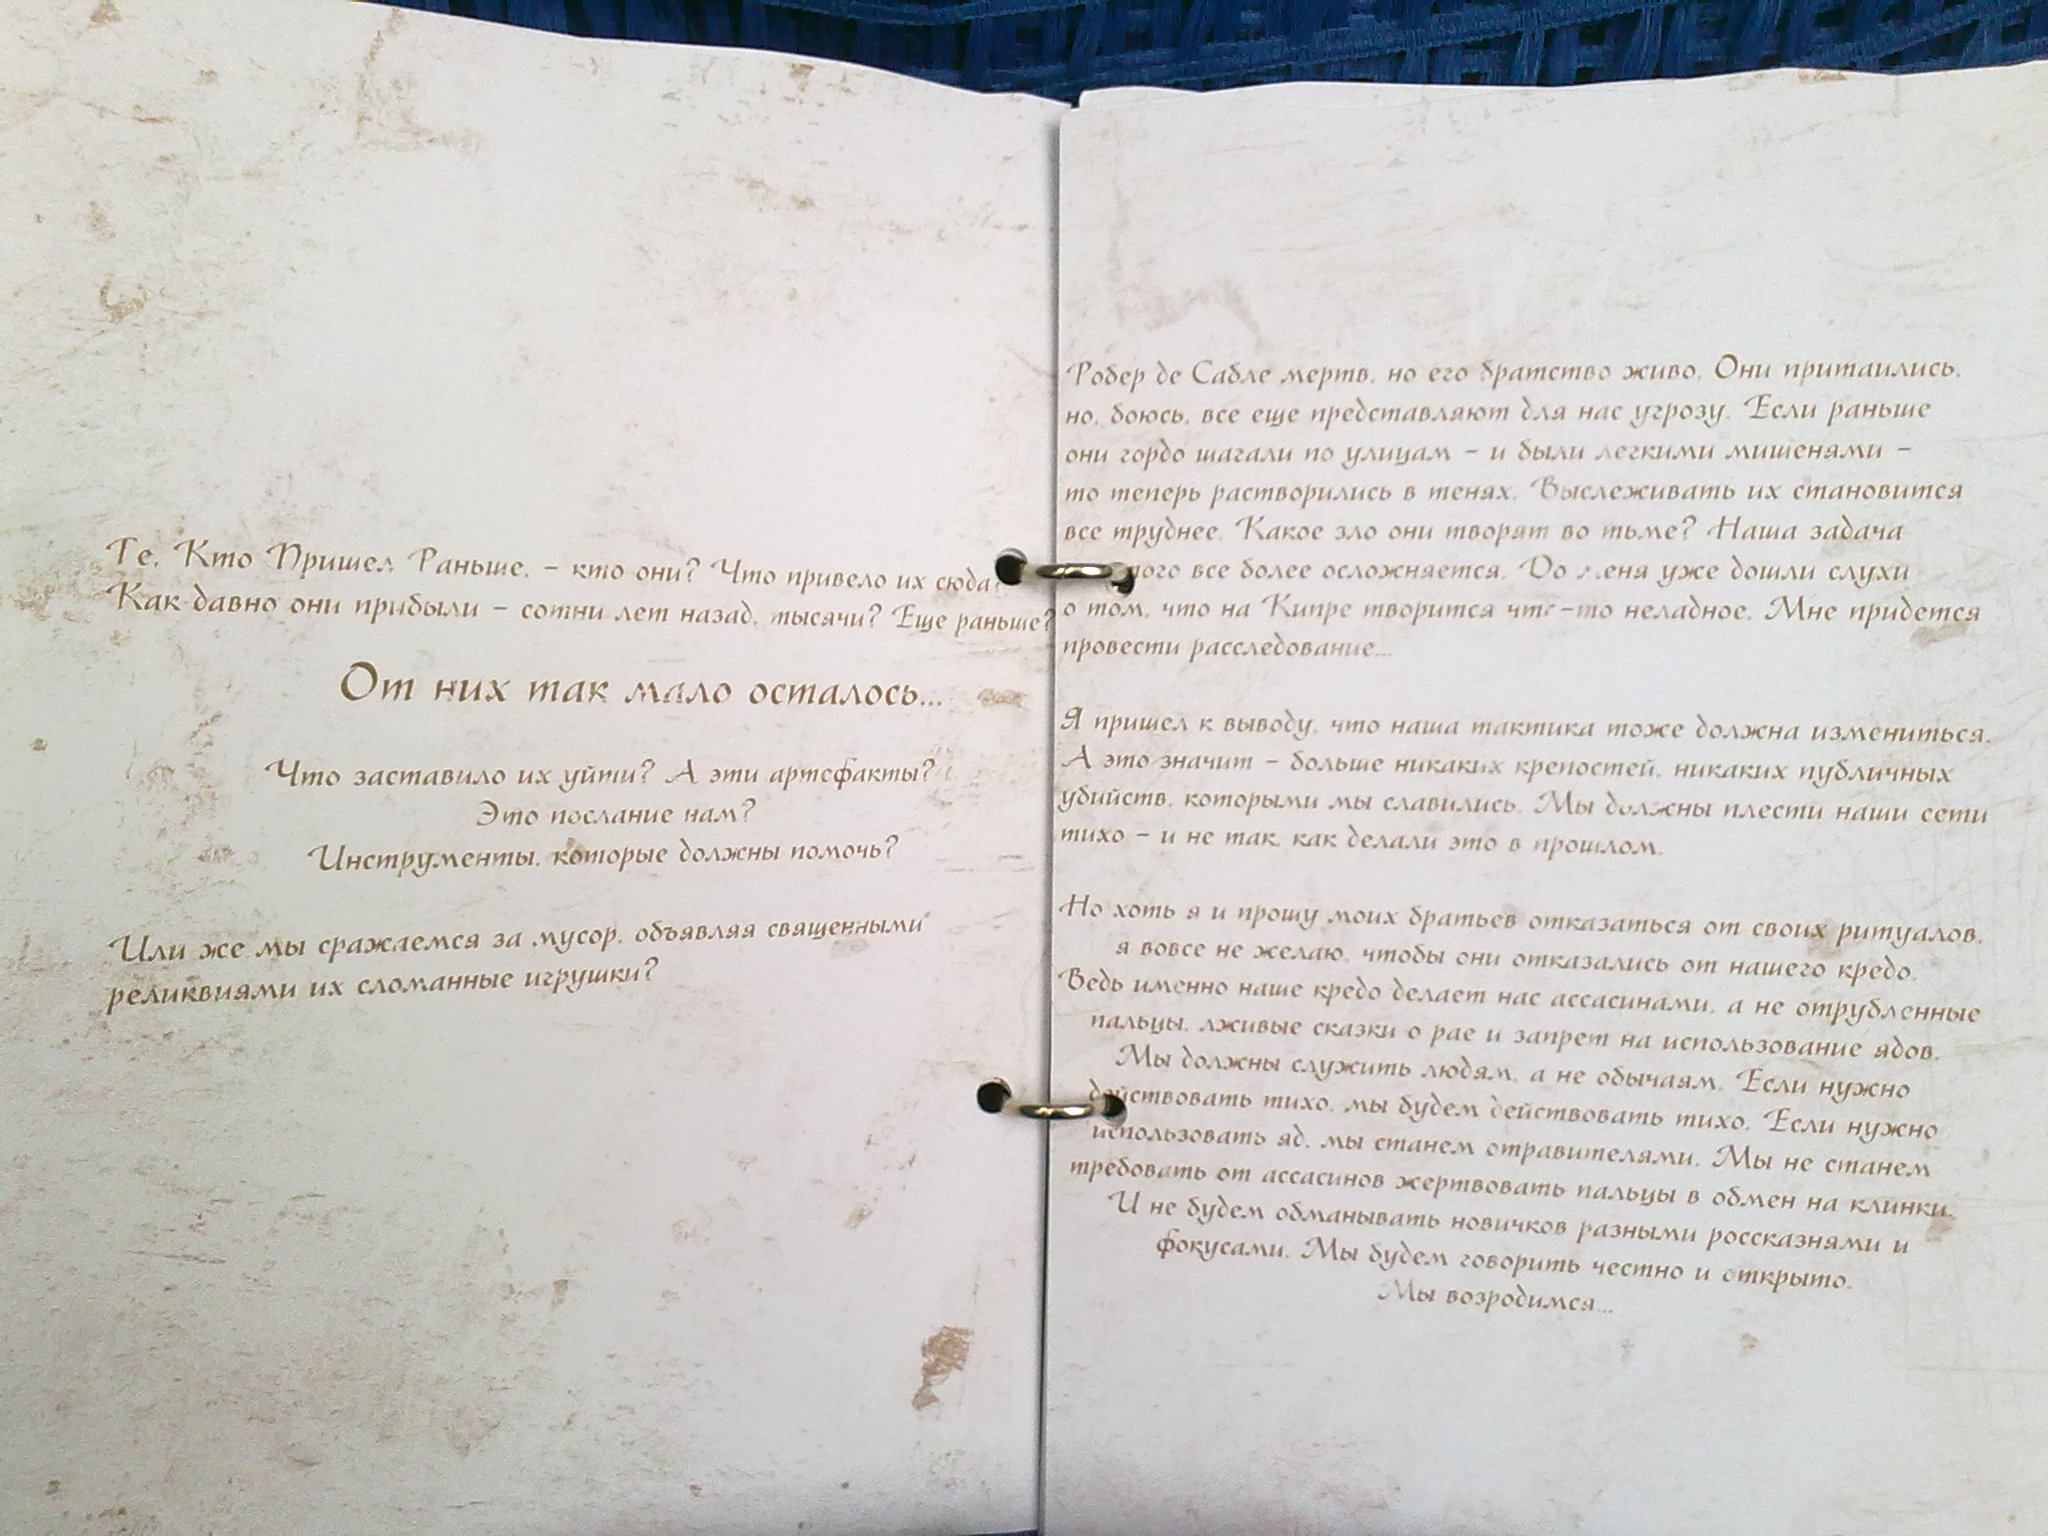 Те, Кто Пришел Раньше, – кто они? Что привело их сюда?
Как давно они прибыли – сотни лет назад, тысячи? Еще раньше?
От них так мало осталось...
Что заставило их уйти? А эти артефакты?
Это послание нам?
Инструменты, которые должны помочь?
Или же мы сражаемся за мусор, объявляя священными
реликвиями их сломанные игрушки?
Робер де Сабле мертв, но его братство живо. Они притаились,
но, боюсь, все еще представляют для нас угрозу. Если раньше
они гордо шагали по улицам – и были легкими мишенями –
то теперь растворились в тенях. Выслеживать их становится
все труднее. Какое зло они творят во тьме? Наша задача
все более осложняется. До меня уже дошли слухи
о том, что на Кипре творится что-то неладное. Мне придется
провести расследование...
Я пришел к выводу, что наша тактика тоже должна измениться.
А это значит – больше никаких крепостей, никаких публичных
убийств, которыми мы славились. Мы должны плести наши сети
тихо – и не так, как делали это в прошлом.
Но хоть я и прошу моих братьев отказаться от своих ритуалов,
я вовсе не желаю, чтобы они отказались от нашего кредо.
Ведь именно наше кредо делает нас ассасинами, а не отрубленные
пальцы, лживые сказки о рае и запрет на использование ядов.
Мы должны служить людям, а не обычаям. Если нужно
действовать тихо, мы будем действовать тихо. Если нужно
использовать яд, мы станем отравителями. Мы не станем
требовать от ассасинов жертвовать пальцы в обмен на клинки.
И не будем обманывать новичков разными россказнями и
фокусами. Мы будем говорить честно и открыто.
Мы возродимся...